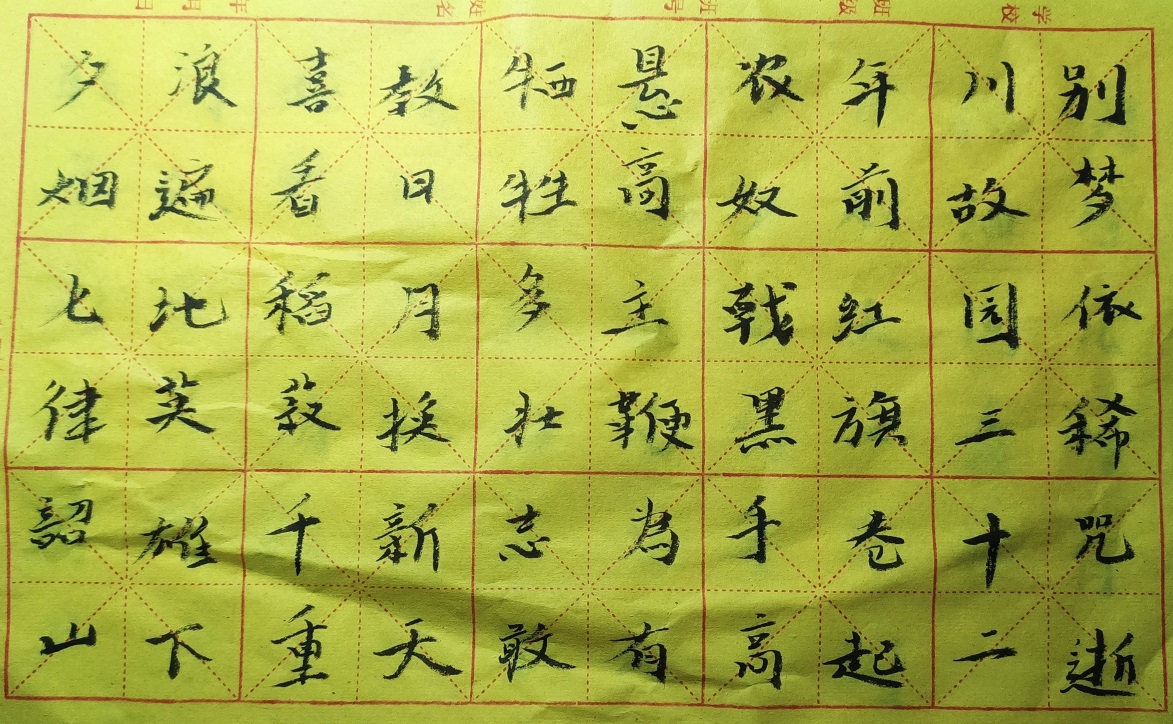 学校
班级
姓名
别梦依稀咒逝
川故园三十二
年前红旗卷起
农奴戟黑手高
悬高主鞭為有
牺牲多壮志敢
教日月换新天
喜看稻菽千重
浪遍地英雄下
夕烟七律韶山